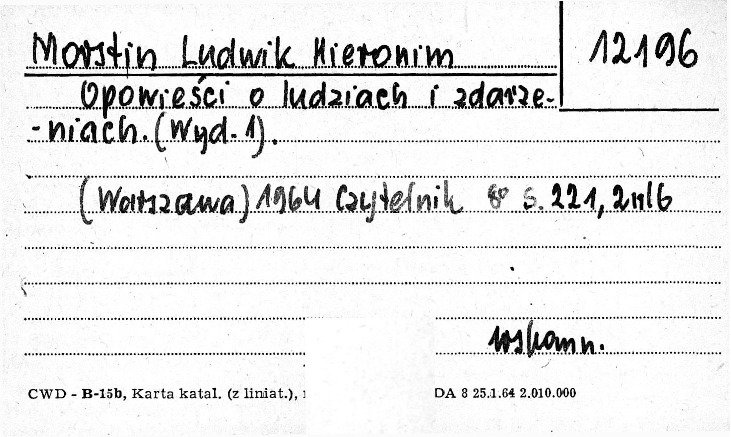 Morstin Ludwik Hieronim
12196
Opowieści o ludziach i zdarze-
-niach. (Wyd. 1).
(Warszawa) 1964 Czytelnik 8° s. 221, 2nlb
wspomn.
CWD - B-15b, Karta katal. (z liniat.),
DA 8 25.1.64 2.010.000